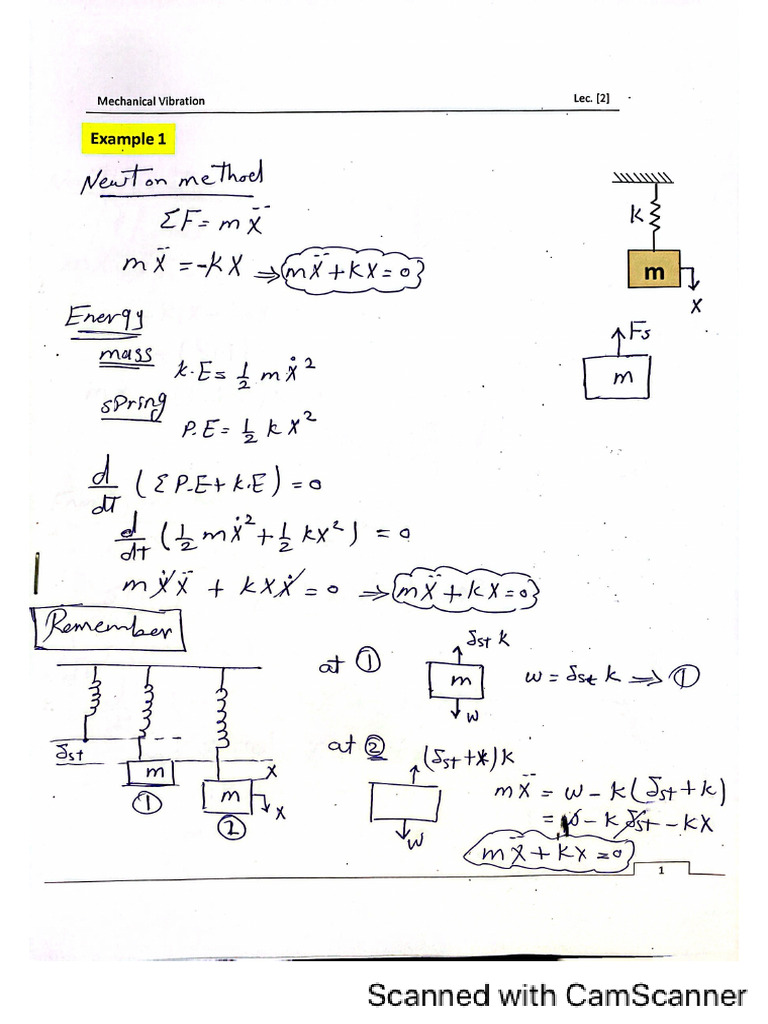 Mechanical Vibration Lec. [2]
Example 1
Newton method
ΣF = m Ẍ
m Ẍ = -K X ⇒ mẌ + KX = 0
K
m
X
Energy
mass K.E = ½ m Ẋ²
Fs
m
spring P.E = ½ k X²
d/dT (Σ P.E + K.E) = 0
d/dt (½ mẊ² + ½ kX²) = 0
m ẊẌ + KXẊ = 0 ⇒ mẌ + KX = 0
Remember
at ① δst k
m
w
w = δst k ⇒ ①
δst
m
①
X
m
X
②
at ② (δst + x) k
w
mẌ = w - k (δst + k)
= w - K δst - KX
mẌ + kX = 0
1
Scanned with CamScanner